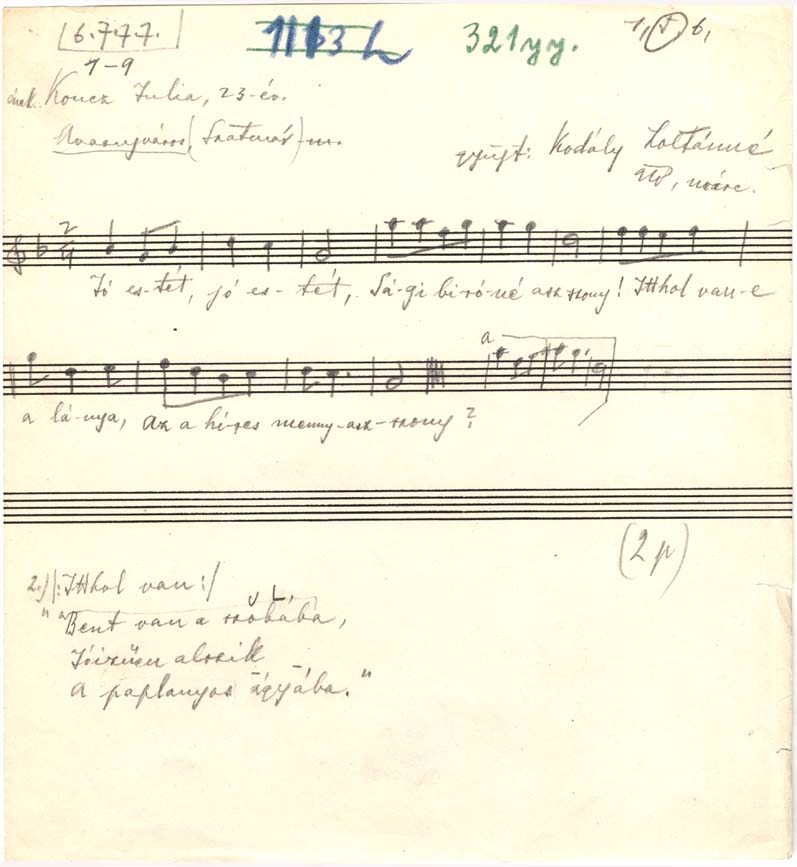 6.7.7.7.
321yy.
7-9
ének. Koncz Julia, 23-év.
Avasujváros, (Szatmár)-m.
gyüjt: Kodály Zoltánné
márc.
Jó es-tét, jó es-tét, Sá-gi bi-ró-né asz szony! Itthol van-e
a
a lá-nya, az a hi-res meny-asz-szony?
(2 p)
2.) |: Itthol van :|
"Bent van a szobába,
Jóizüen alszik
a paplanyos ágyába."